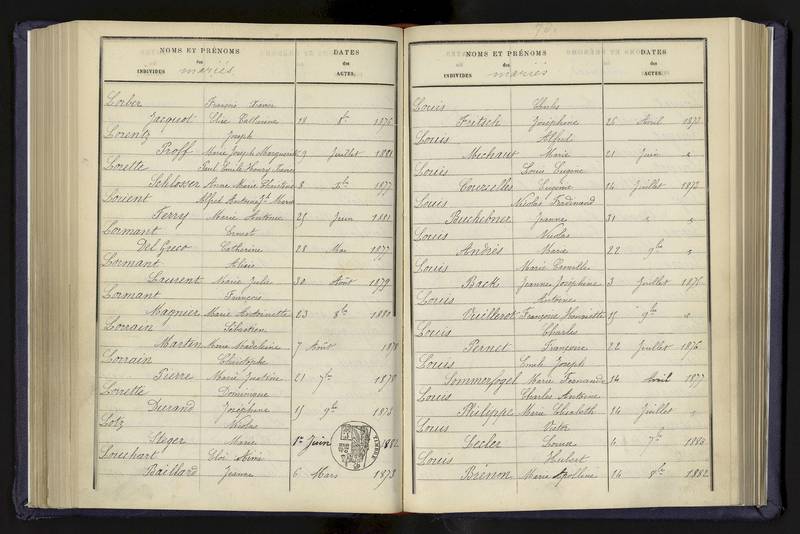 NOMS ET PRÉNOMS DATES
des des
INDIVIDUS mariés ACTES.
Lorber François Xavier
Jacquot Elise Catherine 28 8bre 1876
Lorentz Joseph
Proff Marie Joseph Marguerite 9 Juillet 1881
Lorette Paul Emile Henry Xavier
Schlosser Anne Marie Christine 8 Xbre 1877
Lorient Alfred
Ferry Marie Antoine 25 Juin 1881
Lormant Ernest
Del Greco Catherine 28 Mai 1877
Lormant Alexis
Laurent Marie Julie 30 Août 1879
Lormant François
Magnier Marie Antoinette 23 8bre 1880
Lorrain Sébastien
Marten Madeleine 7 Août 1878
Lorrain Christophe
Pierre Marie Justine 21 7bre 1878
Lorrette Dominique
Durand Joséphine 15 9bre 1873
Lotz Nicolas
Steger Marie 1er Juin 1882
Louchart Eloi Aimé
Baillard Jeanne 6 Mars 1873
NOMS ET PRÉNOMS DATES
des des
INDIVIDUS mariés ACTES.
Louis Charles
Fretsch Joséphine 26 Avril 1873
Louis Alfred
Mechaut Marie 21 Juin "
Louis Louis Eugène
Courselles Eugénie 14 Juillet 1873
Louis Nicolas Ferdinand
Buchebner Jeanne 31 " "
Louis Nicolas
Andrès Marie 22 9bre "
Louis Marie Camille
Back Jeanne Joséphine 3 Juillet 1875
Louis Antoine
Vuillerot Françoise Henriette 15 9bre "
Louis Charles
Pernet Françoise 22 Juillet 1876
Louis Emile Joseph
Sommervogel Marie Fernande 14 Avril 1877
Louis Charles Antoine
Philippe Marie Elisabeth 14 Juillet "
Louis Victor
Lecler Louise 4 7bre 1880
Louis Hubert
Brénon Marie Apolline 14 8bre 1882